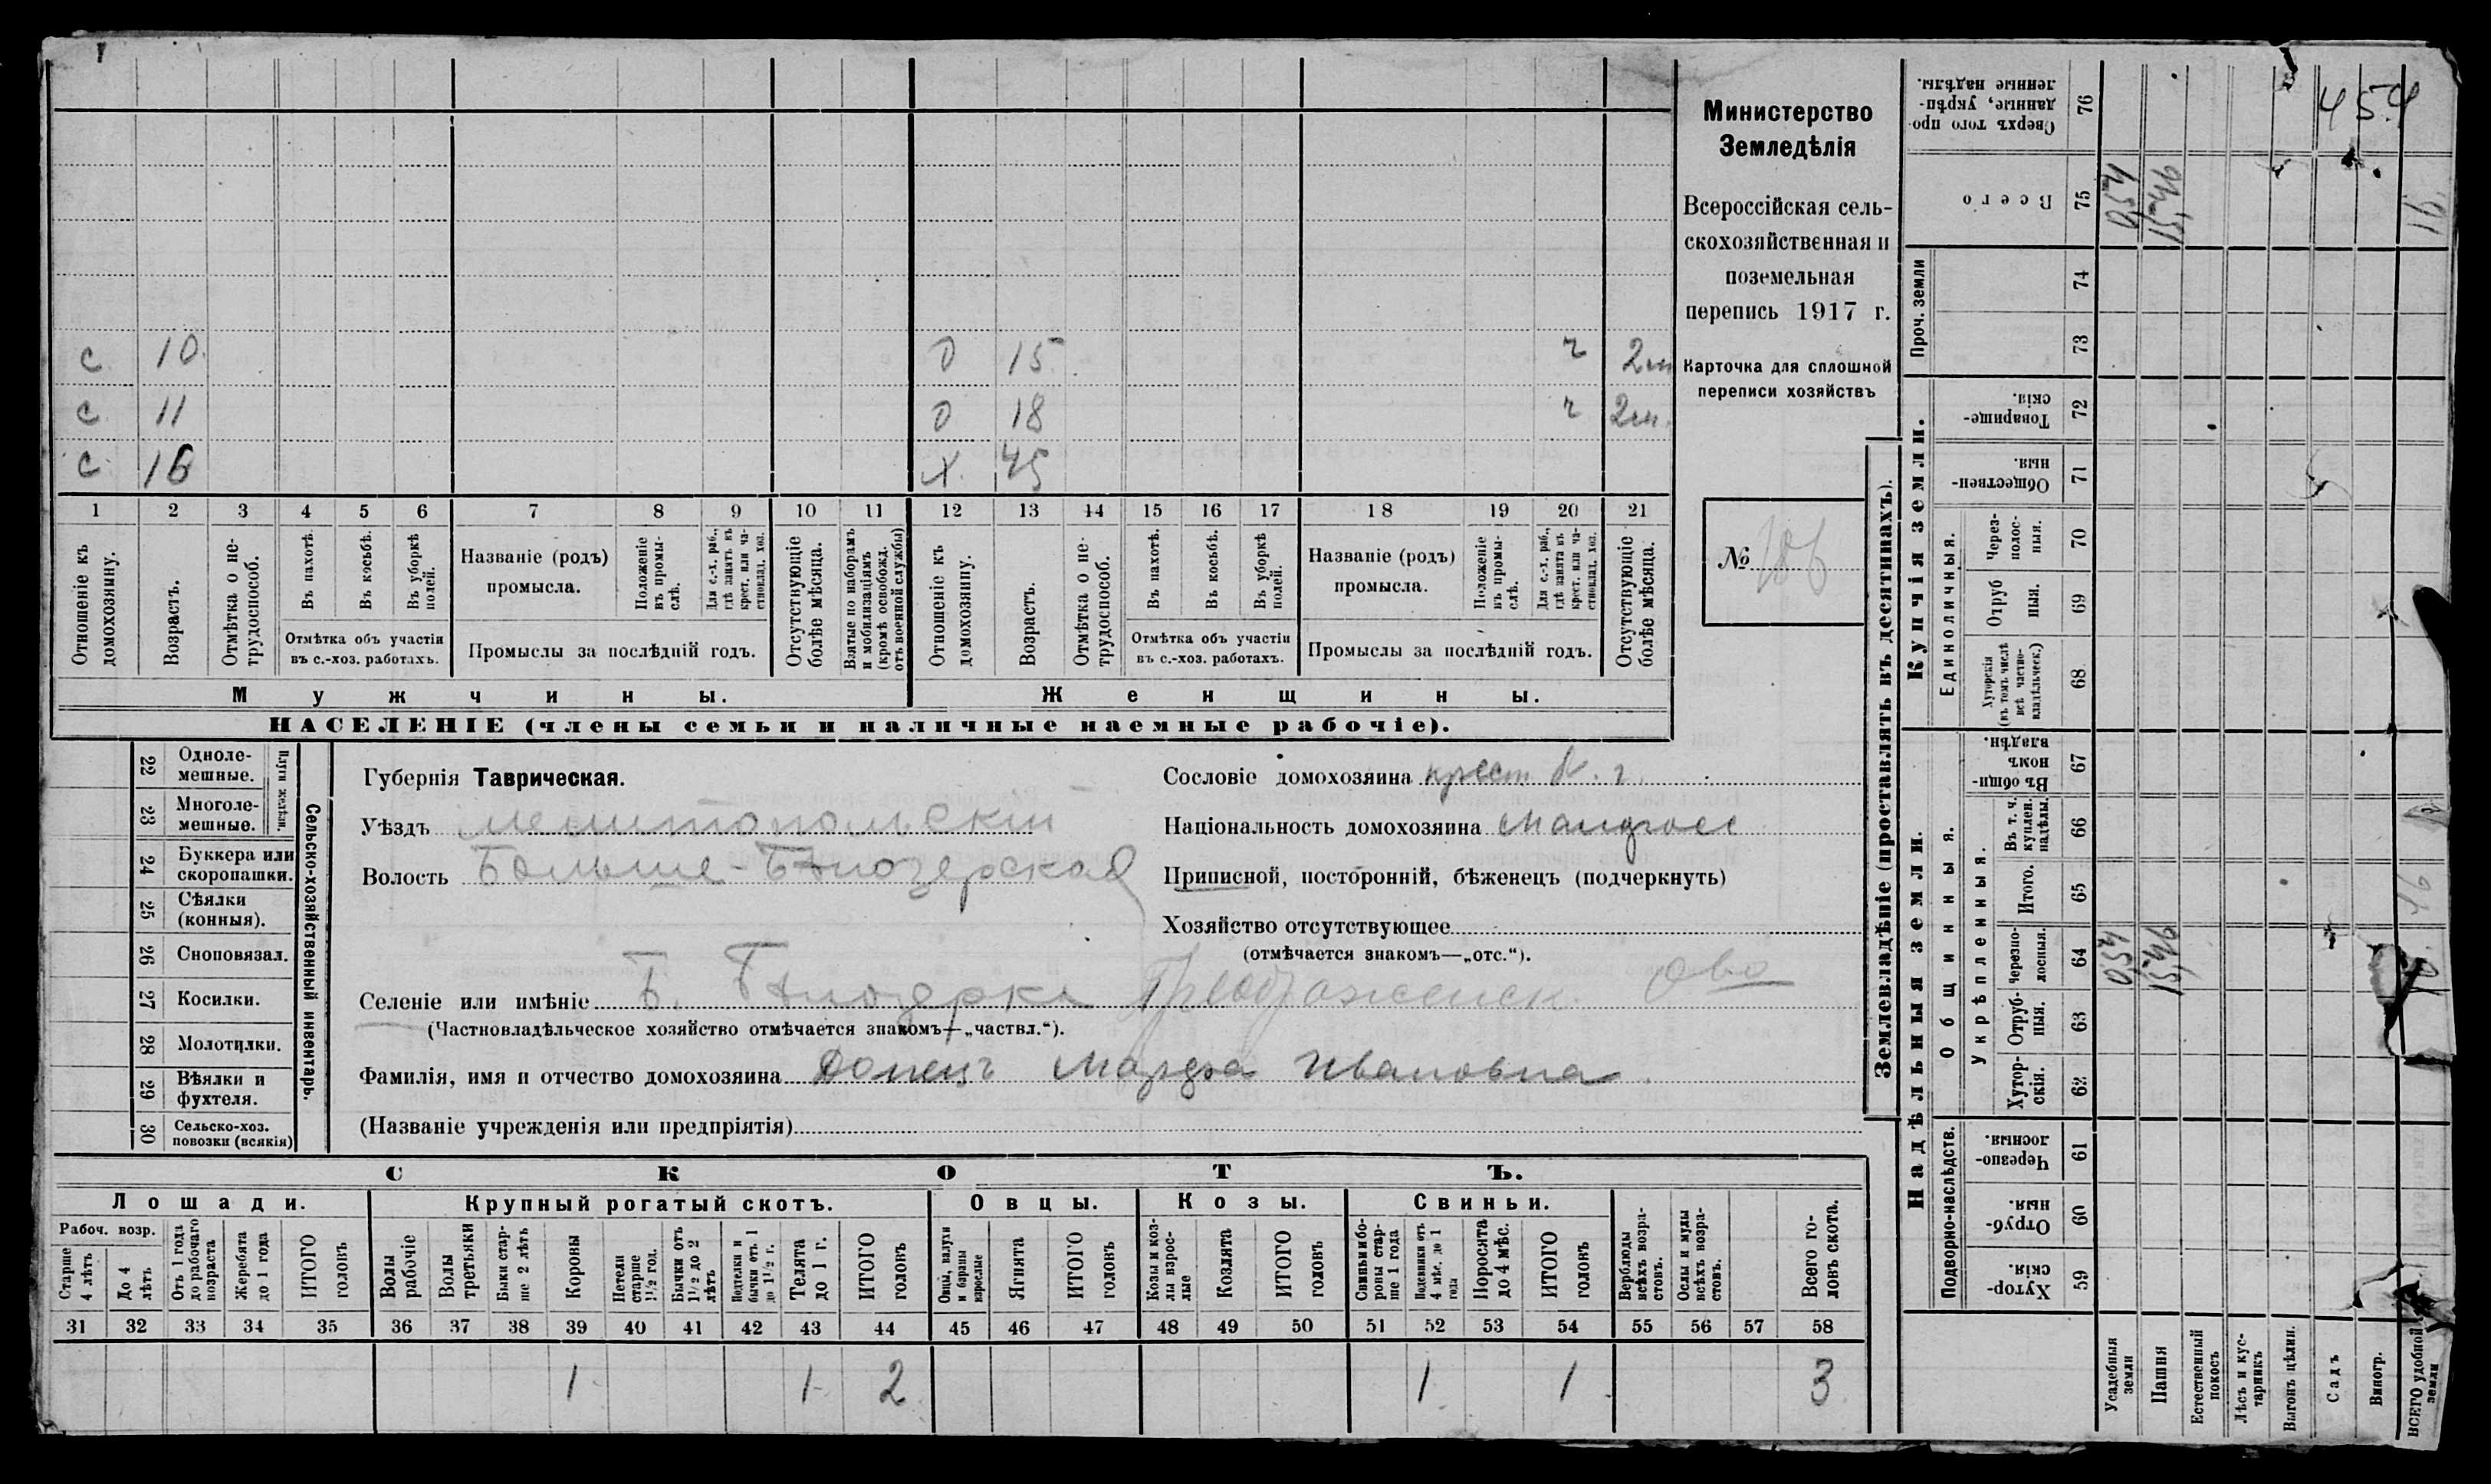 с 10 о 15 ч 2м
с 11 о 18 ч 2м.
с 16 х. 45
1 2 3 4 5 6 7 8 9 10 11 12 13 14 15 16 17 18 19 20 21
Отношеніе къ домохозяину.
Возрастъ.
Отмѣтка о не-трудоспособ.
Въ пахотѣ.
Въ косьбѣ.
Въ уборкѣ полей.
Отмѣтка объ участіи
въ с.-хоз. работахъ.
Названіе (родъ)
промысла.
Положеніе въ промы-слѣ.
Для с.-х. раб., гдѣ занятъ въ крест. или ча-стновлад. хоз.
Промыслы за послѣдній годъ.
Отсутствующіе болѣе мѣсяца.
Взятые по наборамъ и мобилизаціямъ (кромѣ освобожд. отъ военной службы)
Отношеніе къ домохозяину.
Возрастъ.
Отмѣтка о не-трудоспособ.
Въ пахотѣ.
Въ косьбѣ.
Въ уборкѣ полей.
Отмѣтка объ участіи
въ с.-хоз. работахъ.
Названіе (родъ)
промысла.
Положеніе въ промы-слѣ.
Для с.-х. раб., гдѣ занята въ крест. или ча-стновлад. хоз.
Промыслы за послѣдній годъ.
Отсутствующіе болѣе мѣсяца.
Мужчины.
Женщины.
НАСЕЛЕНІЕ (члены семьи и наличные наемные рабочіе).
Министерство
Земледѣлія
Всероссійская сель-
скохозяйственная и
поземельная
перепись 1917 г.
Карточка для сплошной
переписи хозяйствъ
№ 186
22 Одноле-мешные.
23 Многоле-мешные.
Плуги желѣзн.
24 Буккера или скоропашки.
25 Сѣялки (конныя).
26 Сноповязал.
27 Косилки.
28 Молотилки.
29 Вѣялки и фухтеля.
30 Сельско-хоз. повозки (всякія)
Сельско-хозяйственный инвентарь.
Губернія Таврическая.
Уѣздъ Мелитопольскій
Волость Больше-Бѣлозерская
Селеніе или имѣніе Б. Бѣлозерка Преображенск. ово
(Частновладѣльческое хозяйство отмѣчается знакомъ—„частвл.“).
Фамилія, имя и отчество домохозяина Донецъ Марфа Ивановна
(Названіе учрежденія или предпріятія)
Сословіе домохозяина крест.
Національность домохозяина малоросс
Приписной, посторонній, бѣженецъ (подчеркнуть)
Хозяйство отсутствующее
(отмѣчается знакомъ—„отс.“).
СКОТЪ.
Лошади. Крупный рогатый скотъ. Овцы. Козы. Свиньи.
Рабоч. возр.
Старше 4 лѣтъ
До 4 лѣтъ
Отъ 1 года до рабочаго возраста
Жеребята до 1 года
ИТОГО головъ
Волы рабочіе
Волы третьяки
Быки стар-ше 2 лѣтъ
Коровы
Нетели старше 1½ год.
Бычки отъ 1½ до 2 лѣтъ
Подтелки и бычки отъ 1 до 1½ г.
Телята до 1 г.
ИТОГО головъ
Овцы, валухи и бараны взрослые
Ягнята
ИТОГО головъ
Козы и коз-лы взрос-лые
Козлята
ИТОГО головъ
Свиньи и бо-ровы стар-ше 1 года
Подсвинки отъ 4 мѣс. до 1 года
Поросята до 4 мѣс.
ИТОГО головъ
Верблюды всѣхъ возра-стовъ.
Ослы и мулы всѣхъ возра-стовъ.
Всего го-ловъ скота.
31 32 33 34 35 36 37 38 39 40 41 42 43 44 45 46 47 48 49 50 51 52 53 54 55 56 57 58
1 1 2 1 1 3
Землевладѣніе (проставлять въ десятинахъ).
Купчія земли.
Надѣльныя земли.
Сверхъ того про-данные, укрѣп-ленные надѣлы. 76
Всего 75
Проч. земли 74 73
Товарище-скія. 72
Обществен-ныя. 71
Единоличныя.
Через-полос-ныя. 70
Отруб-ныя. 69
Хуторскія (въ томъ числѣ всѣ частно-владѣльческ.) 68
Въ общин-номъ владѣн. 67
Общинныя.
Укрѣпленныя.
Въ т. ч. куплен. надѣлы. 66
Итого. 65
Черезпо-лосныя. 64
Отруб-ныя. 63
Хутор-скія. 62
Подворно-наслѣдств.
Черезпо-лосныя. 61
Отруб-ныя. 60
Хутор-скія. 59
Усадебныя земли
Пашня
Естественный покосъ
Лѣсъ и кус-тарникъ
Выгонъ цѣлин.
Садъ
Виногр.
ВСЕГО удобной земли